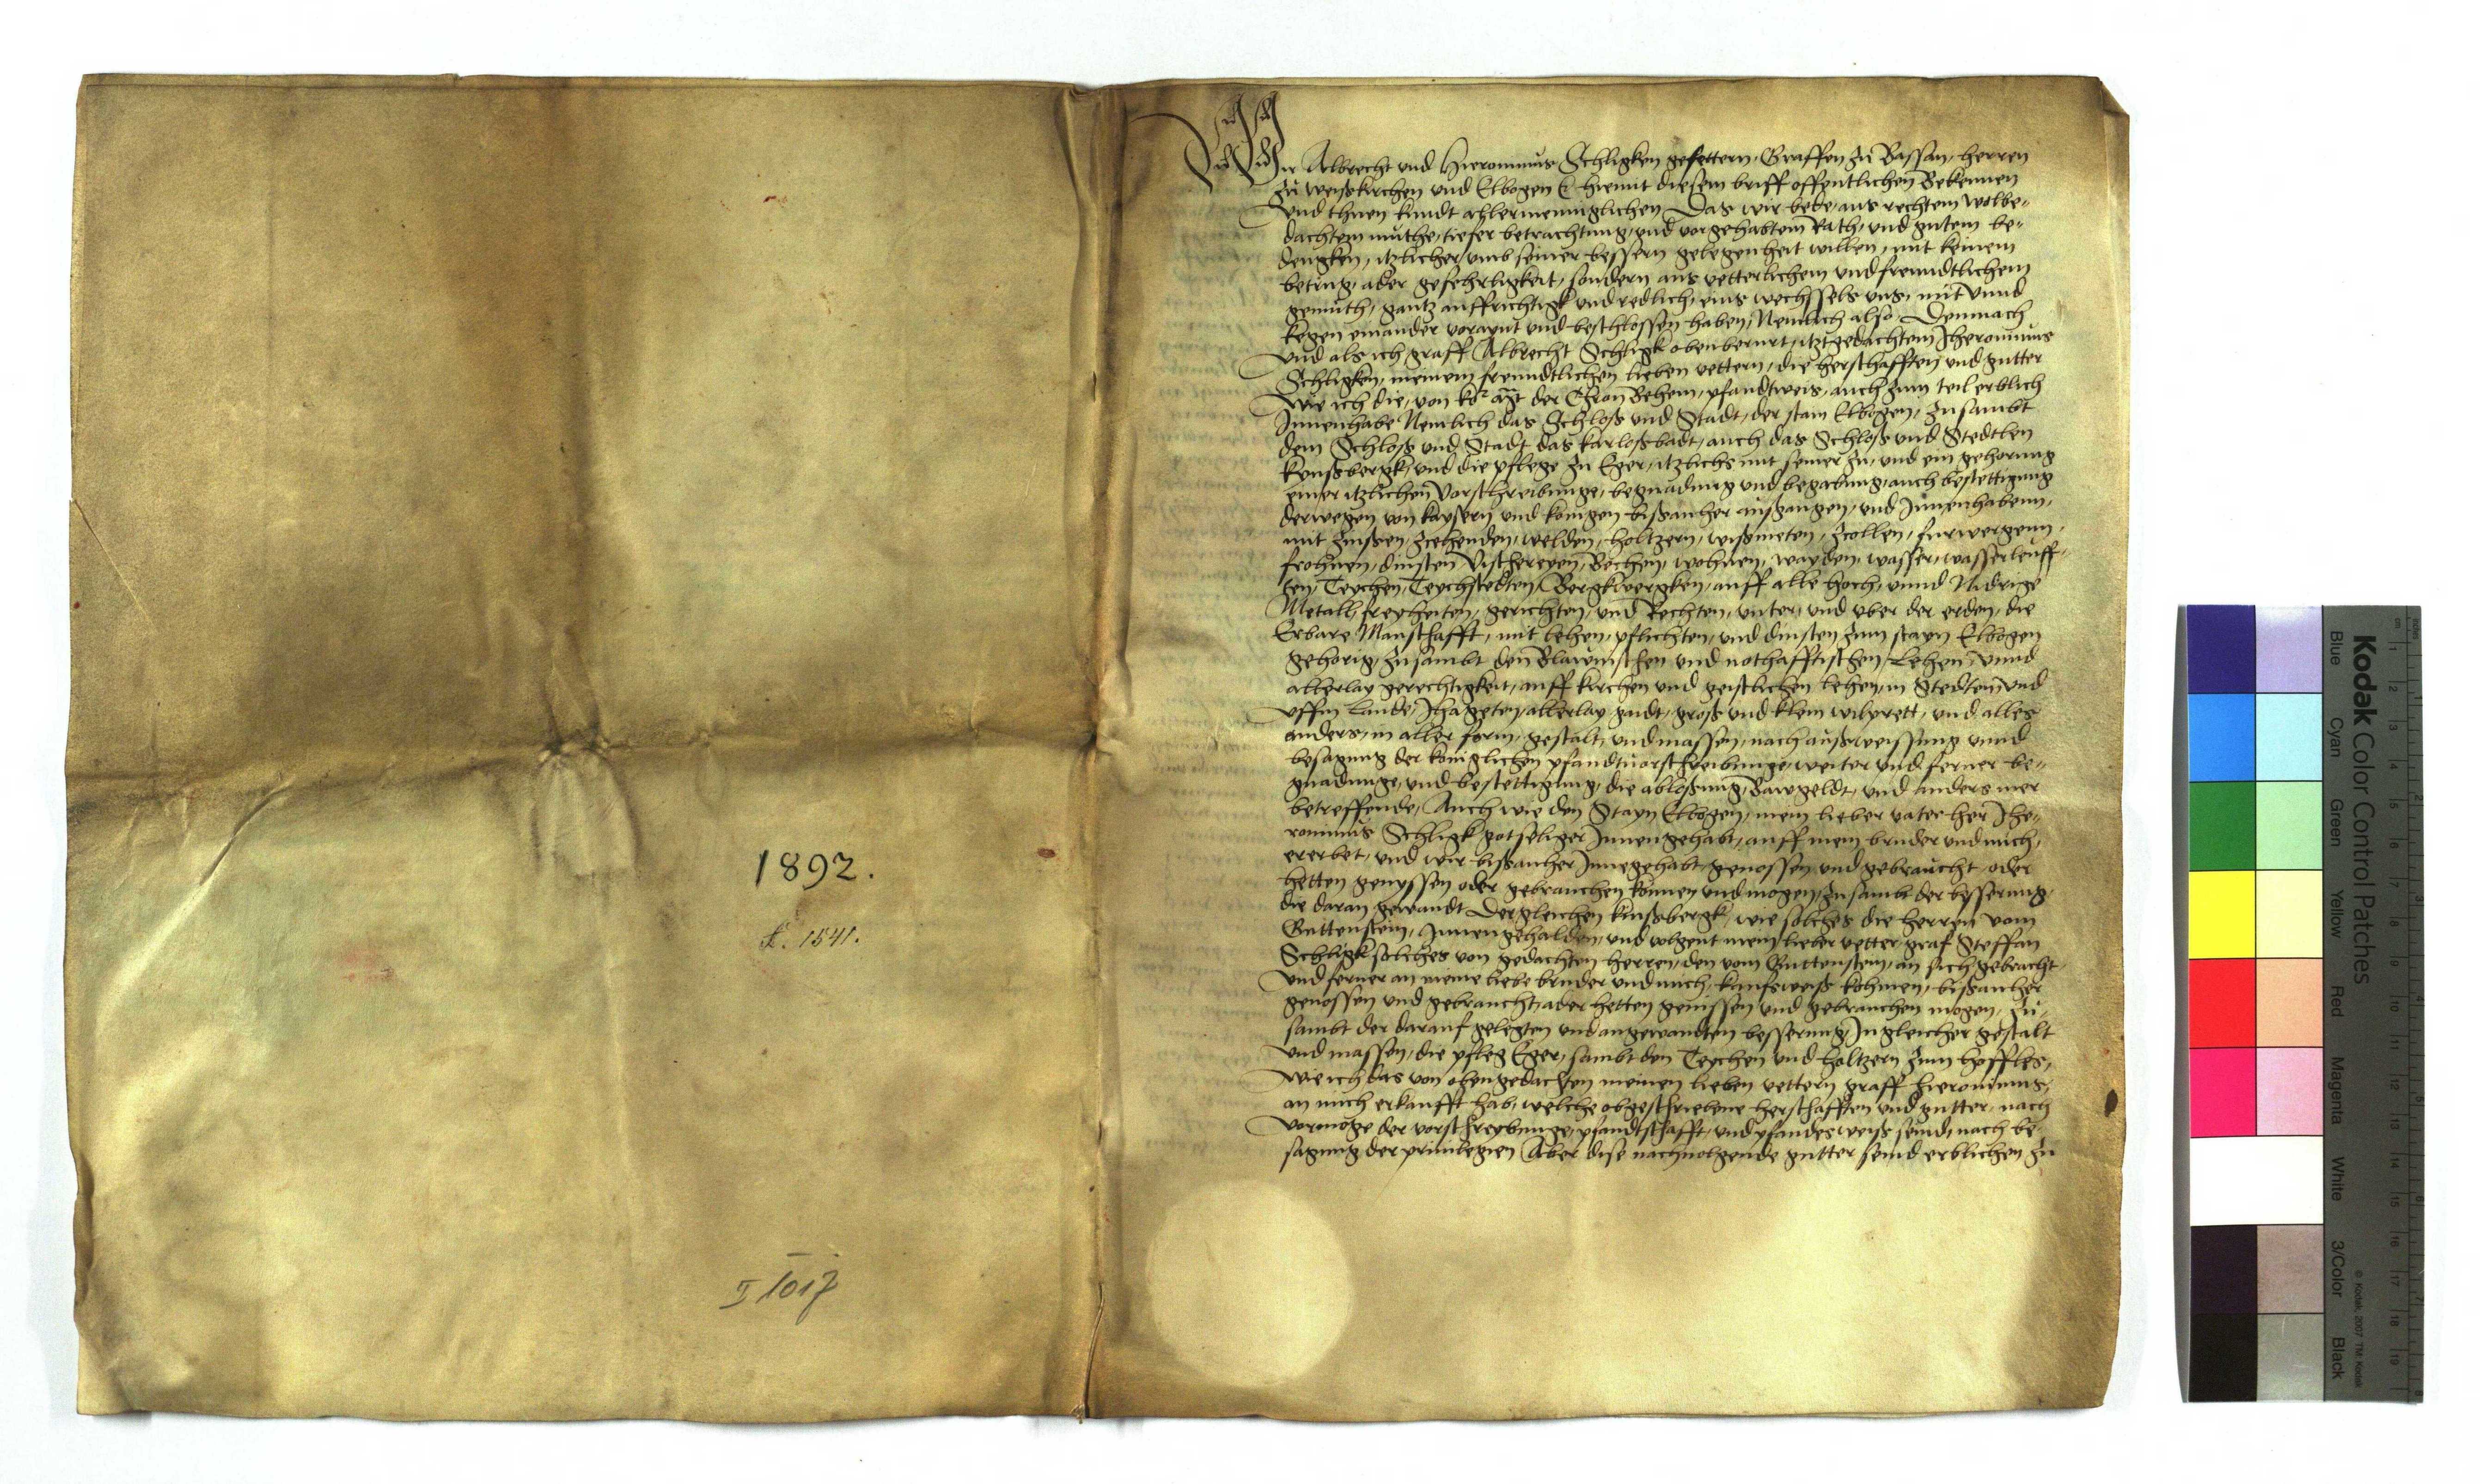 1892.
L. 1541.
II 1017
Wir Albrecht und Hieronimus Schligken gefettern, Graffen zu Bassan, herren
zu weißkirchen und Elbogen hiemit diesem briff offentlichen Bekennen
und thuen kundt allermenniglichen Das wir bede, aus rechtem wolbe-
dachtem muthe, tiefer betrachtung, und vorgehabtem Rath, und gutem be-
dengken, itzlicher umb seiner bessern gelegenheit willen, mit keinem
betrug, ader gefehrligkeit, sondern aus vetterlichem und freundtlichem
gemuth, gantz auffrichtigk und redlich, eins wechssels uns, mit unnd
kegen einander voraynt und beschlossen haben, Nemlich also Demnach
und als ich graff Albrecht Schligk obenberurt, itztgedachtem Jheronimus
Schligken, meinem freundtlichen lieben vettern, die herschafften und gutter
Wie ich die, von der Chron Behem, pfandtweis, auch zum teil erblich
Innenhabe Nemlich das Schloß und Stadt, der stain Elbogen, zusambt
dem Schloß und Stadt das karloßbadt, auch das Schloß und Stedtlen
kenßbergk, und die pflege zu Eger, itzlichs mit seiner zu, und ein gehorung
einer itzlichen vorschreibunge, begnadung und begabung, auch bestettigung
derwegen von kaysern und konigen bißanher außgangen, und Innenhabenn,
mit zinßen, zcehenden, welden, holtzern, wißmeten, zcollen, furwergenn,
frohnen, dinsten Vischereyen, Bechen, wohnen, wayden, wasser, wasserleuff-
ten, Teychen, Teychstedten, Bergkwergken, auff alle hoch, unnd Nidrige
Metall, freyheiten, gerichten, und Rechten, unter, und uber der erden, die
Erbare Manschafft, mit lehen, pflichten, und dinsten zum stayn Elbogen
gehorig, zusambt den Blawnischen und nothafftischen Lehen, unnd
allerlay gerechtigkeit, auff kirchen und geistlichen lehen, in Stedten und
uffm Lande, Jhageten, allerlay gaidt, groß und klein wilprett, und alles
anders, in aller form, gestalt, und massen, nach außweissung unnd
besagung der koniglichen pfandtvorschreibunge, weiter und ferner be-
gnadunge, und bestettigung, die abloßung, Bawgeldt, und anders mer
betreffende, Auch wie den Stayn Elbogen, mein lieber vater her Jhe-
ronimus Schligk gotseliger Innen gehabt, auff mein bruder und mich,
ererbet, und wir bißanher Innegehabt, genossen und gebraucht, oder
hetten genyssen oder gebrauchen konnen und mogen, zu sambt der besserung,
die daran gewandt Dergleichen kinßbergk, wie solches die herren vom
Guttenstein, Innengehalden, und volgent mein lieber vetter graf Steffan
Schligk solches von gedachten herren, den vom Guttenstein, an sich gebracht,
und ferner an meine liebe bruder und mich, kaufsweiß kohmen, bißanher
genossen und gebraucht, ader hetten genissen und gebrauchen mogen, zu-
sambt der darauf gelegten und angewandten besserung, In gleicher gestalt
und massen, die pfleg Eger, sambt den Teychen und holtzern zum hoffles,
wie ich das von obengedachten meinen lieben vettern graff Hieronimus,
an mich erkaufft hab, welche obgeschriebene herschafften und gutter, nach
vormoge der vorschreybunge, pfandtschafft, und pfandesweiß seind, nach be-
sagung der privilegien Aber dise nachvolgende gutter seind erblichen zu
Kodak Color Control Patches
Blue Cyan Green Yellow Red Magenta White 3/Color Black
© Kodak, 2007 TM: Kodak